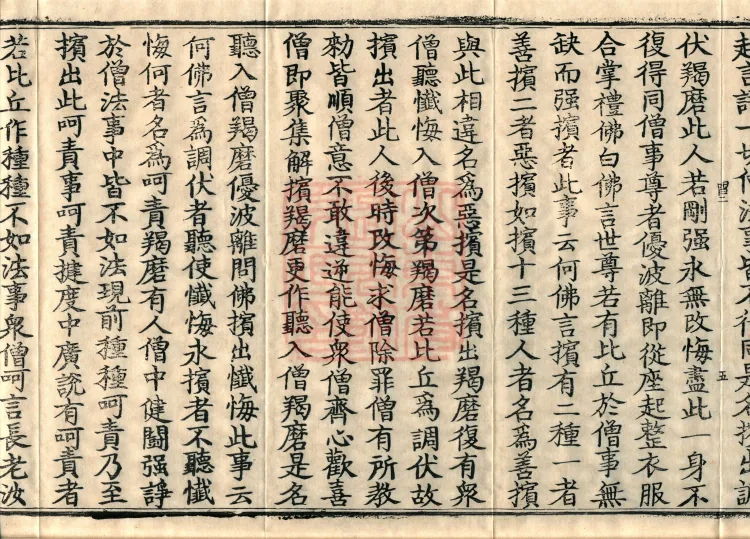 伏羯磨此人若剛强永無改悔盡此一身不
復得同僧事尊者優波離即從座起整衣服
合掌禮佛白佛言世尊若有比丘於僧事無
缺而强擯者此事云何佛言擯有二種一者
善擯二者惡擯如擯十三種人者名爲善擯
與此相違名爲惡擯是名擯出羯磨復有衆
僧聽懺悔入僧次第羯磨若比丘爲調伏故
擯出者此人後時改悔求僧除罪僧有所教
勑皆順僧意不敢違逆能使衆僧齊心歡喜
僧即聚集解擯羯磨更作聽入僧羯磨是名
聽入僧羯磨優波離問佛擯出懺悔此事云
何佛言爲調伏者聽使懺悔永擯者不聽懺
悔何者名爲呵責羯磨有人僧中健鬪强諍
於僧法事中皆不如法現前種種呵責乃至
擯出此呵責事呵責揵度中廣說有呵責者
若比丘作種種不如法事衆僧呵言長老汝